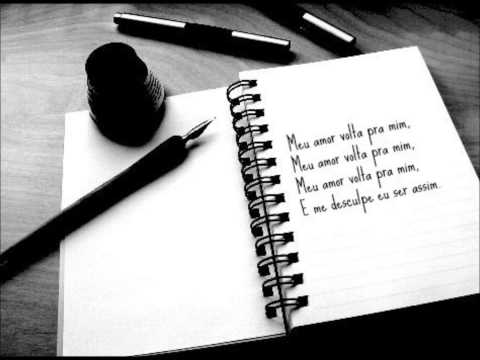 Meu amor volta pra mim,
Meu amor volta pra mim,
Meu amor volta pra mim,
E me desculpe eu ser assim.